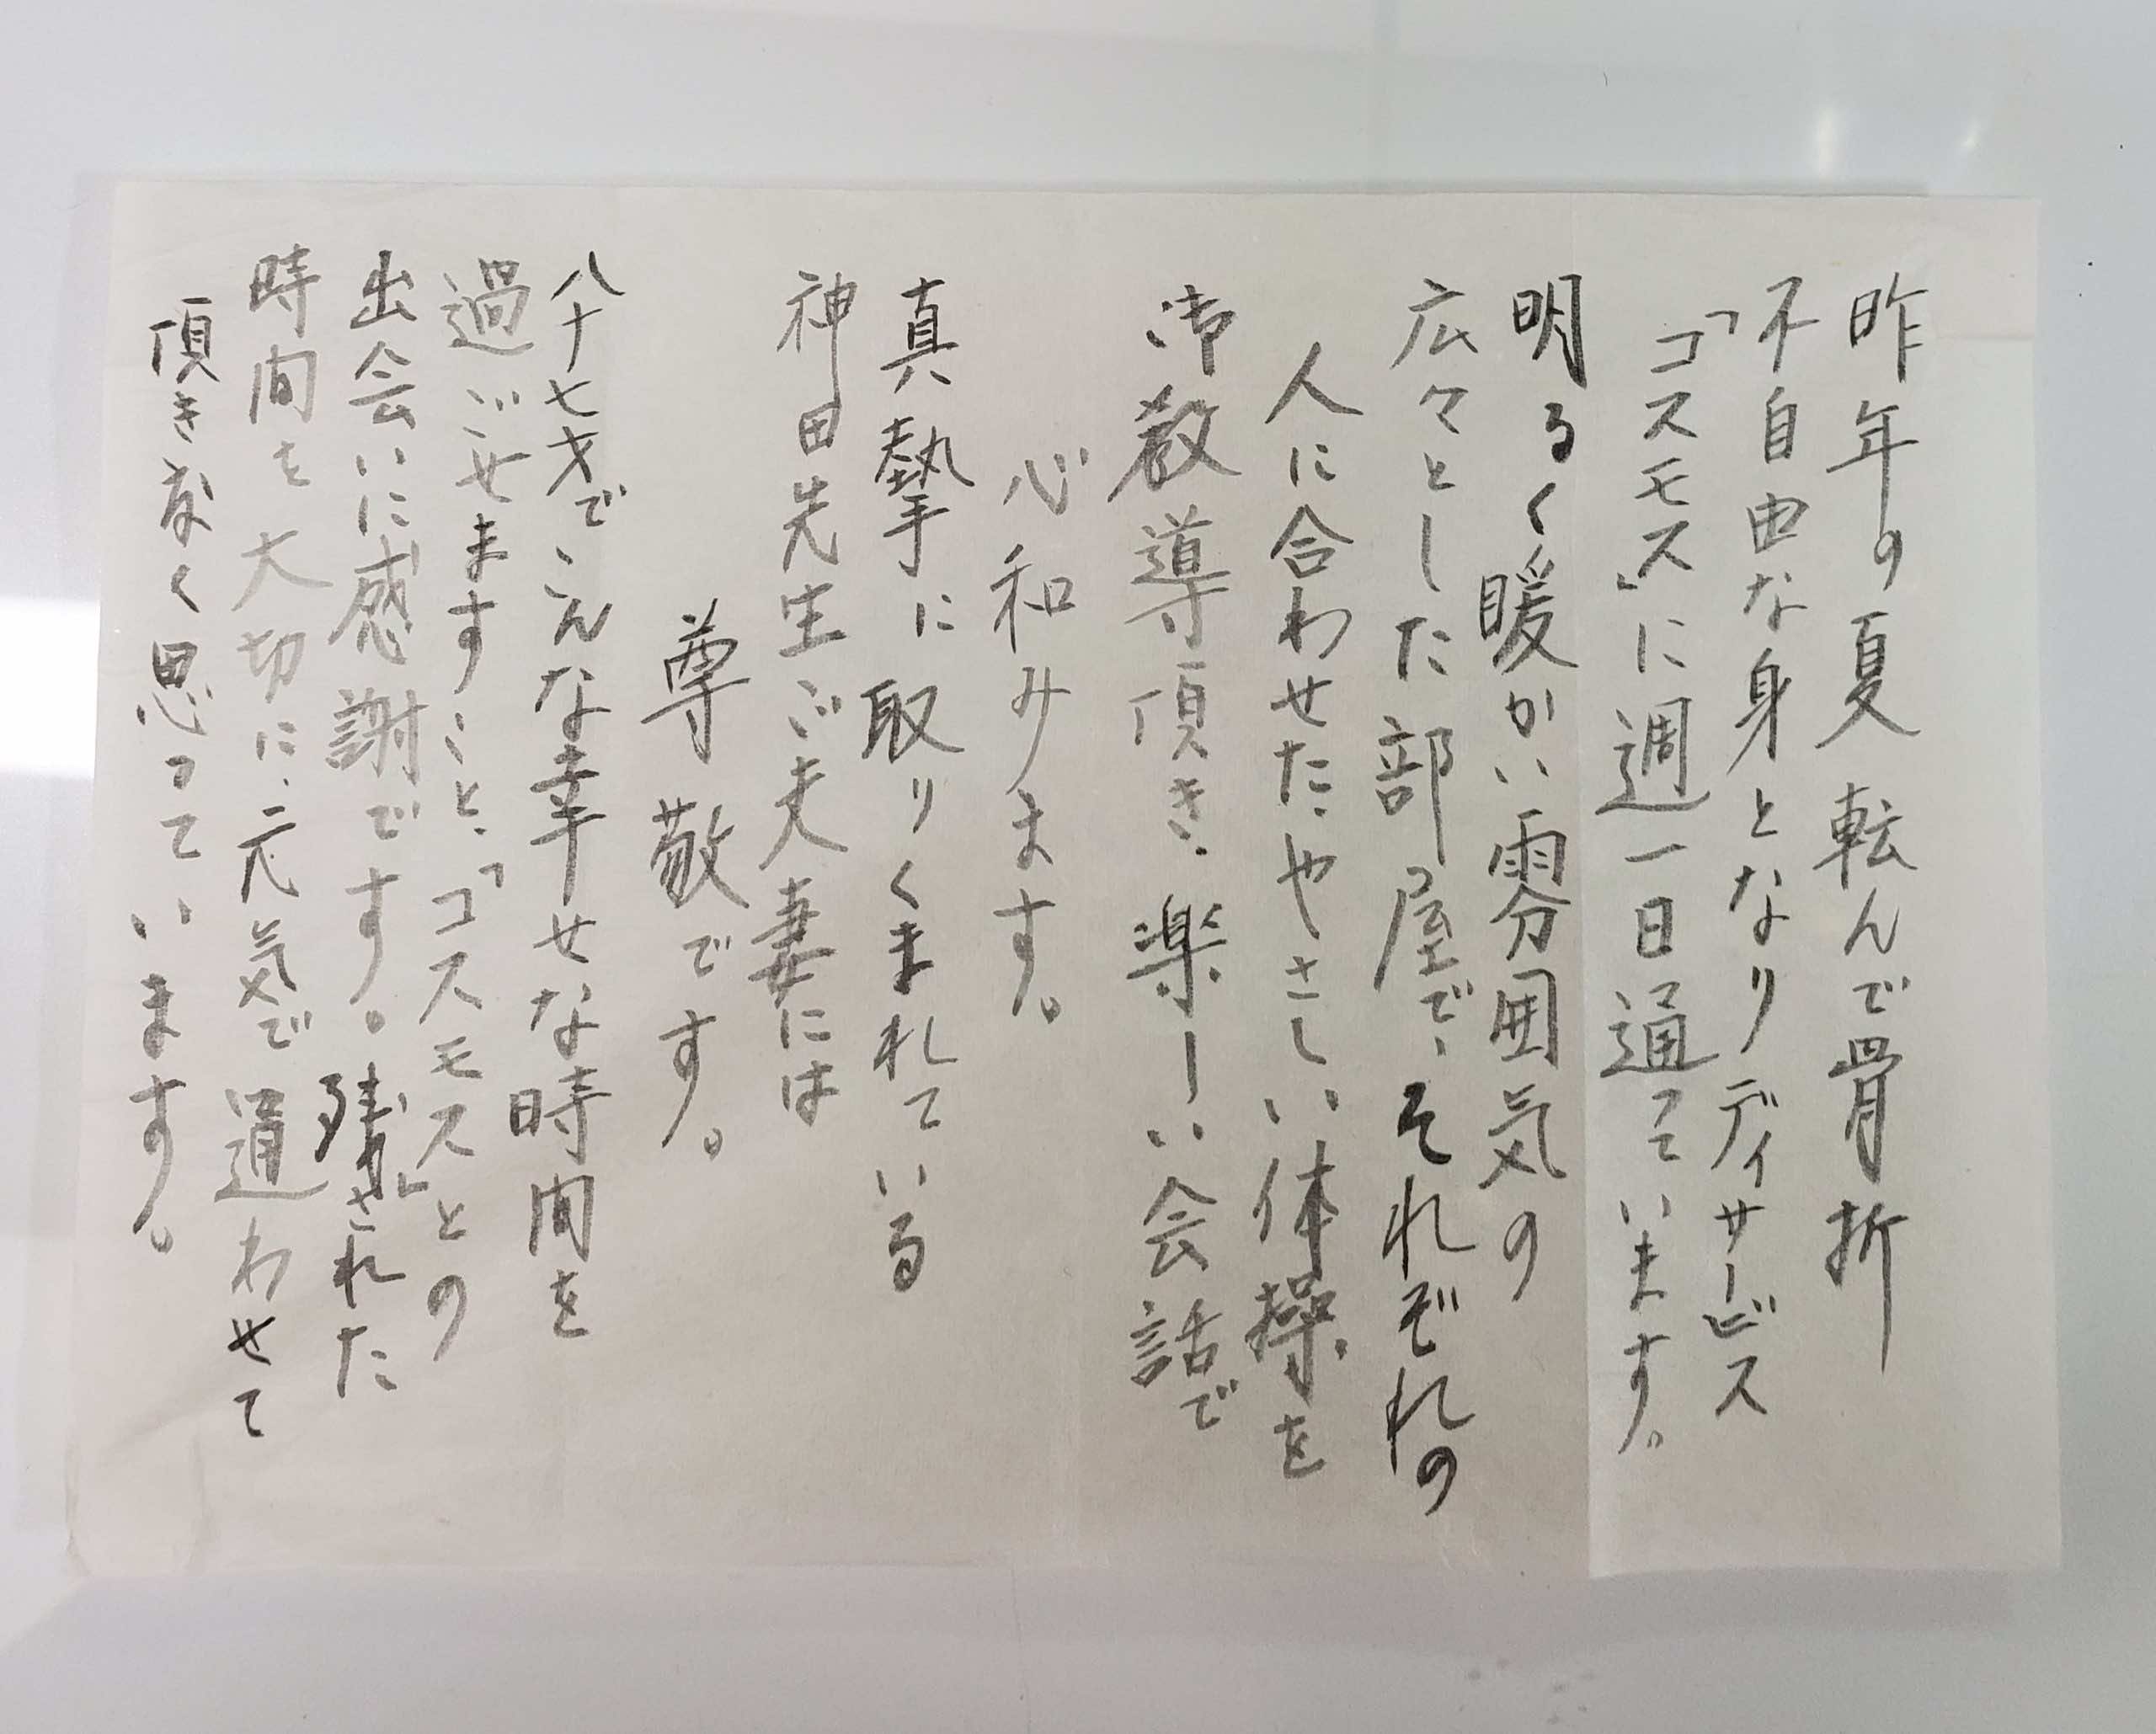 昨年の夏転んで骨折
不自由な身となりディサービス
「コスモス」に週一日通っています。
明るく暖かい雰囲気の
広々とした部屋で、それぞれの
人に合わせたやさしい体操を
御教導頂き、楽しい会話で
心和みます。
真摯に取りくまれている
神田先生ご夫妻には
尊敬です。
八十七才でこんな幸せな時間を
過ごせますこと、「コスモス」との
出会いに感謝です。残された
時間を大切に、元気で通わせて
頂き度く思っています。